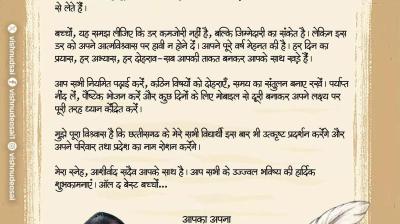 से लेते हैं।
बच्चों, यह समझ लीजिए कि डर कमजोरी नहीं है, बल्कि जिम्मेदारी का संकेत है। लेकिन इस
डर को अपने आत्मविश्वास पर हावी न होने दें। आपने पूरे वर्ष मेहनत की है। हर दिन का
प्रयास, हर अभ्यास, हर दोहराव-सब आपकी ताकत बनकर आपके साथ खड़े हैं।
आप सभी नियमित पढ़ाई करें, कठिन विषयों को दोहराएँ, समय का संतुलन बनाए रखें। पर्याप्त
नींद लें, पौष्टिक भोजन करें और कुछ दिनों के लिए मोबाइल से दूरी बनाकर अपने लक्ष्य पर
पूरी तरह ध्यान केंद्रित करें।
मुझे पूरा विश्वास है कि छत्तीसगढ़ के मेरे सभी विद्यार्थी इस बार भी उत्कृष्ट प्रदर्शन करेंगे और
अपने परिवार तथा प्रदेश का नाम रोशन करेंगे।
मेरा स्नेह, आशीर्वाद सदैव आपके साथ है। आप सभी के उज्ज्वल भविष्य की हार्दिक
शुभकामनाएं। ऑल द बेस्ट बच्चों...
आपका अपना
vishnudsai
vishnudeosai1
vishnudeosai